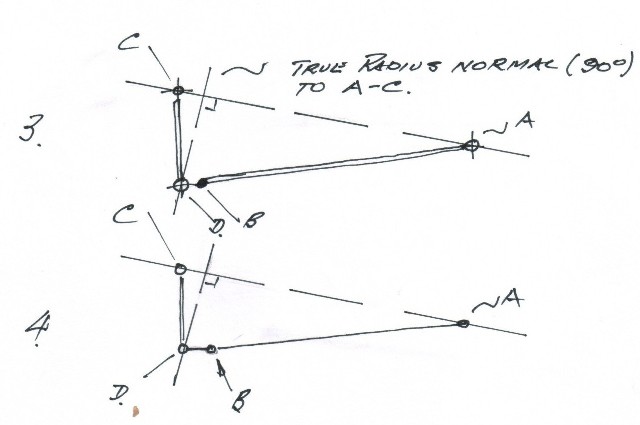 C
TRUE RADIUS NORMAL (90°)
TO A-C.
A
3.
D. B
C
A
4
D. B